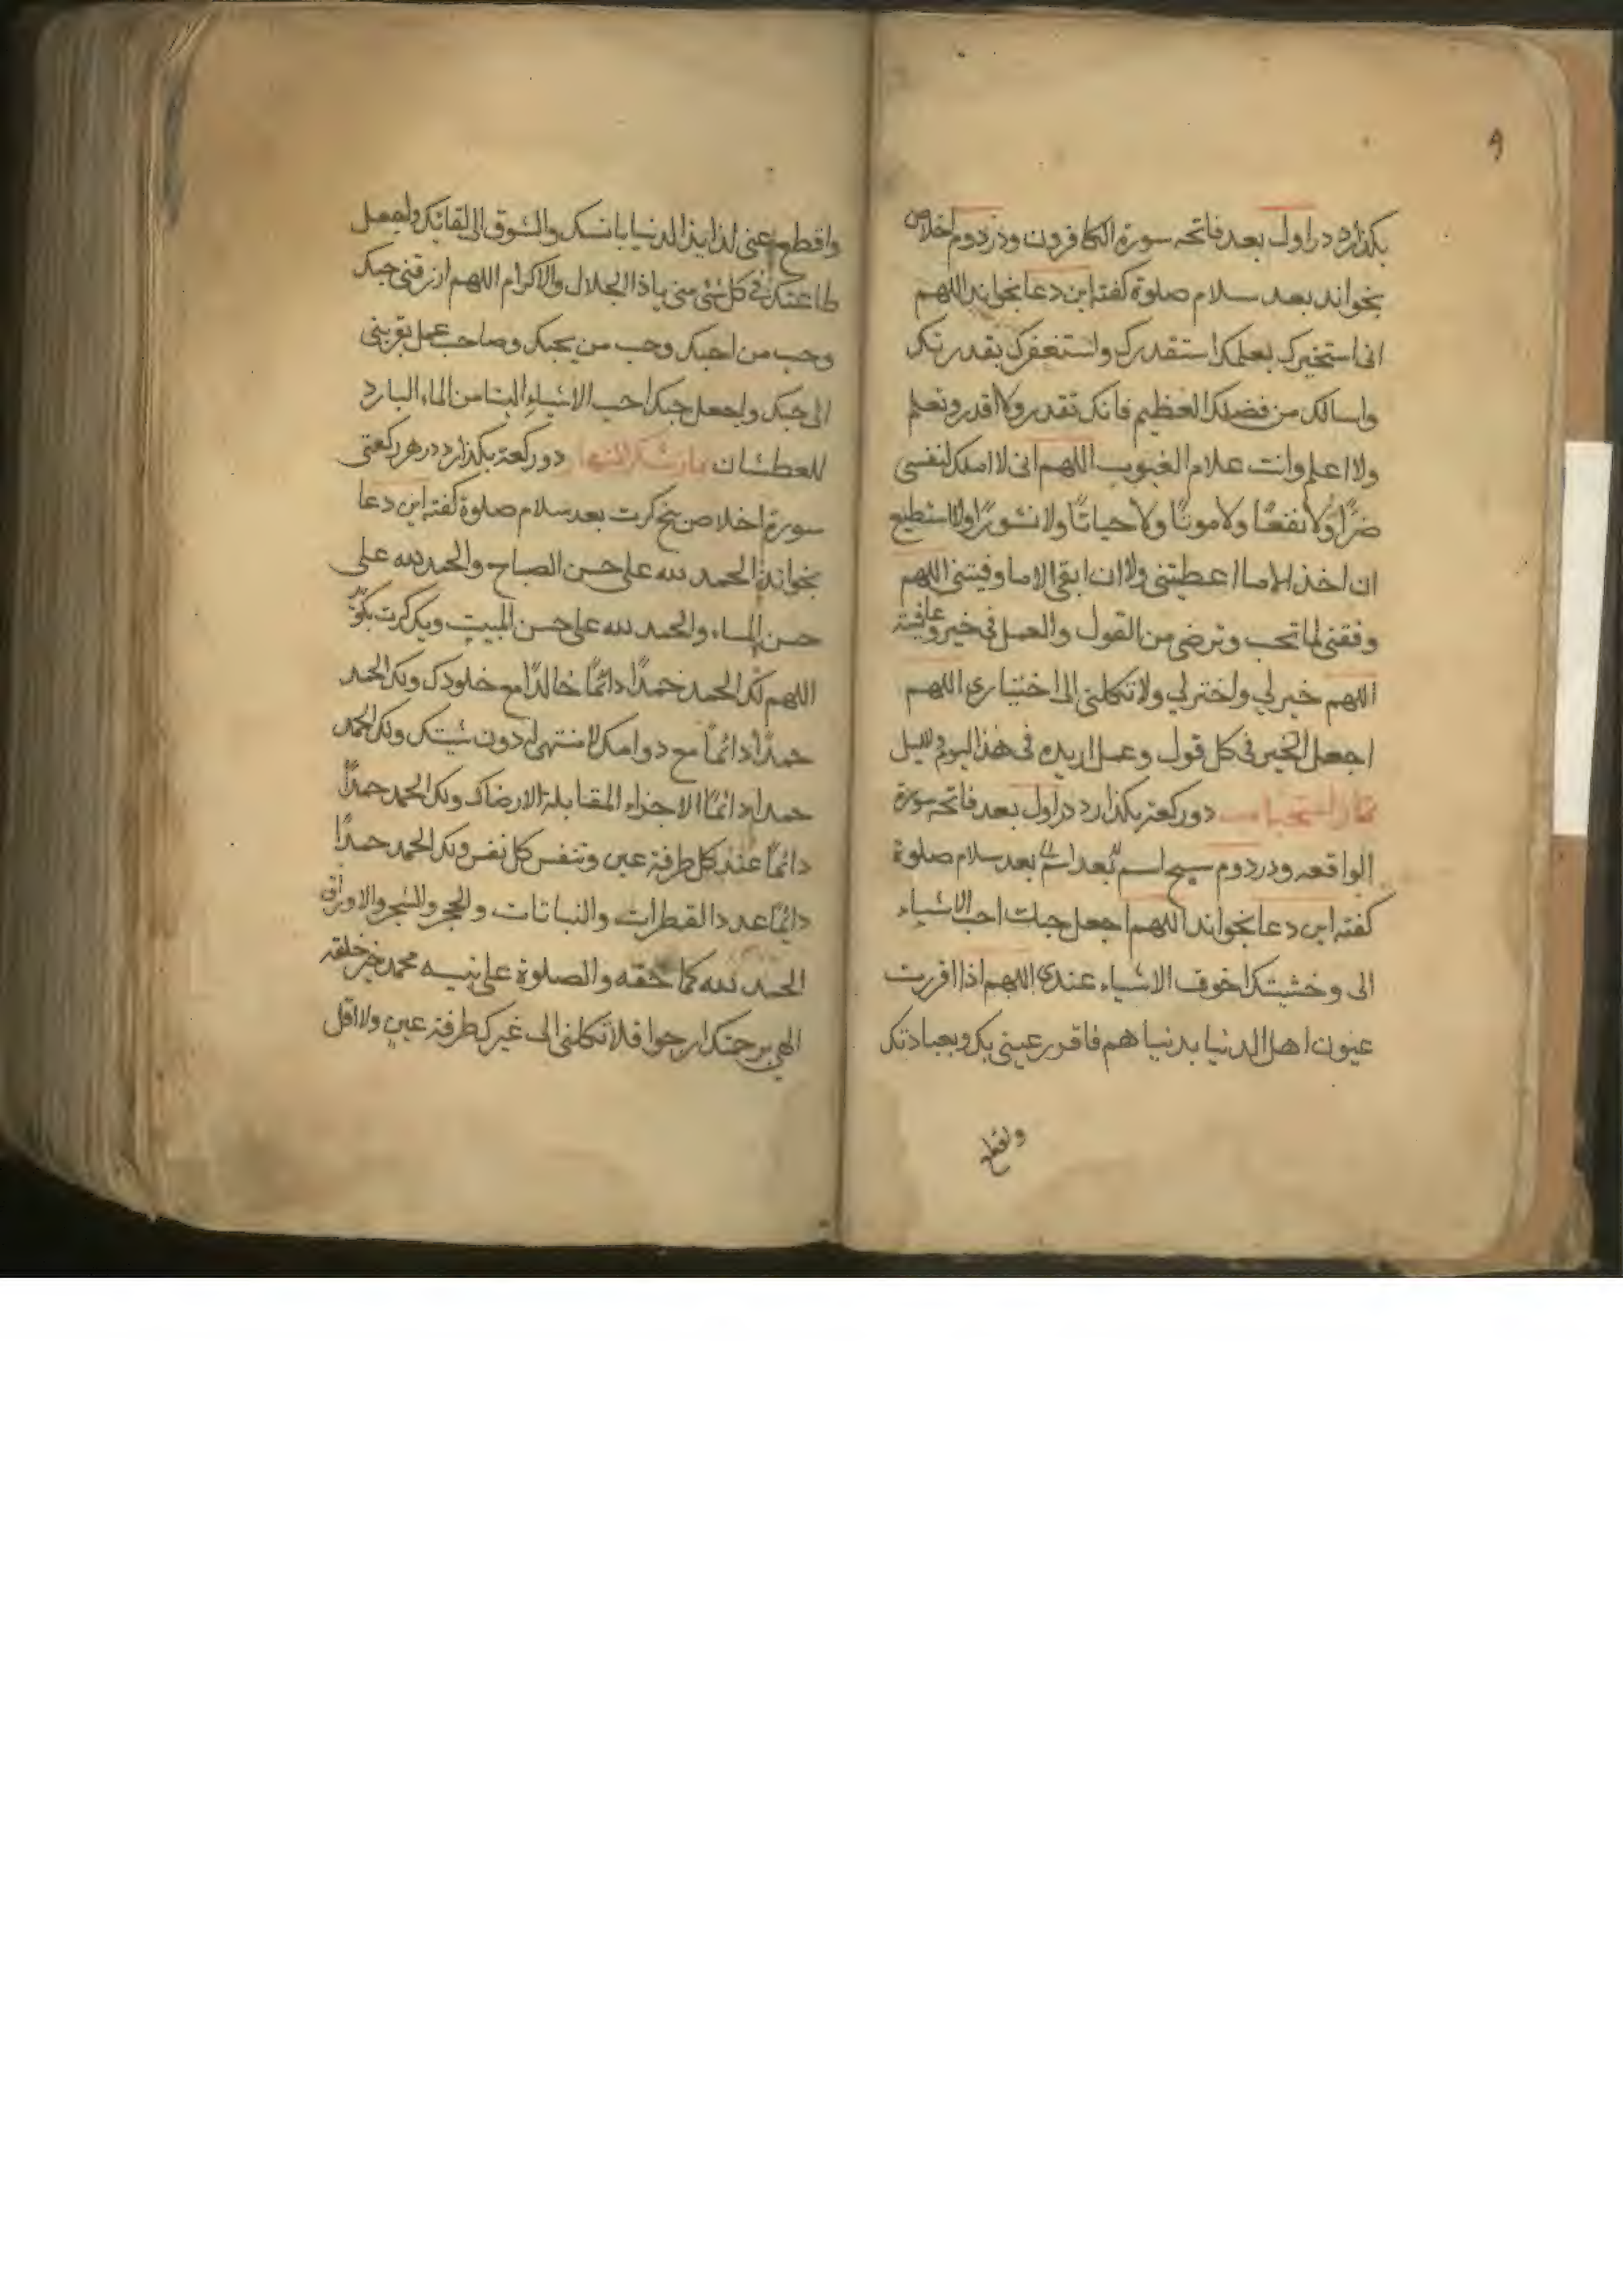 ۹
بکذارد در اول بعد فاتحه سورة الکافرون و در دوم اخلاص
بخواند بعد سلام صلوة کفته این دعا بخواند اللهم
انی استخیرک بعلمک استقدرک واستغفرک بقدرتک
واسالک من فضلک العظیم فانک تقدر ولا اقدر وتعلم
ولا اعلم وانت علام الغیوب اللهم انی لا املک لنفسی
ضرًا ولا نفعًا ولا موتًا ولا حیاتًا ولا نشورًا ولا استطیع
ان اخذ الا ما اعطیتنی ولا ان اتقی الا ما وقیتنی اللهم
وفقنی لما تحب وترضی من القول والعمل فی خیر وعافیة
اللهم خیر لی واختر لی ولا تکلنی الی اختیاری اللهم
اجعل الخیر فی کل قول وعمل اریده فی هذا الیوم واللیل
نماز استحباب دو رکعة بکذارد در اول بعد فاتحه سورة
الواقعه و در دوم سبح اسم بعد سلام صلوة
کفته این دعا بخواند اللهم اجعل حبک احب الاشیاء
الی وخشیتک اخوف الاشیاء عندی اللهم اذا اقررت
عیون اهل الدنیا بدنیاهم فاقرر عینی بک وبعبادتک
واقطع
واقطع عنی لذایذ الدنیا بانسک والشوق الی لقائک واجعل
طاعتک فی کل شئ منی یا ذا الجلال والاکرام اللهم ارزقنی حبک
وحب من احبک وحب من یحبک وصاحب عمل یقربنی
الی حبک واجعل حبک احب الاشیاء الینا من الماء البارد
للعطشان نماز شکر النهار دو رکعة بکذارد در هر رکعتی
سورة اخلاص پنج کرت بعد سلام صلوة کفته این دعا
بخواند الحمد لله علی حسن الصباح والحمد لله علی
حسن المساء والحمد لله علی حسن المبیت ویک کرت بکوید
اللهم لک الحمد حمدًا دائمًا خالدًا مع خلودک ولک الحمد
حمدًا دائمًا مع دوامک لا منتهی له دون مشیتک ولک الحمد
حمدا دائمًا لا جزاء المقابلة الا رضاک ولک الحمد حمدًا
دائمًا عند کل طرفة عین وتنفس کل نفس ولک الحمد حمدًا
دائمًا عدد القطرات والنباتات والحجر والشجر والاوراق
الحمد لله کما حقه والصلوة علی نبیه محمد خیر خلقه
الهی برحمتک ارجوا فلا تکلنی الی غیرک طرفة عین ولا اقل